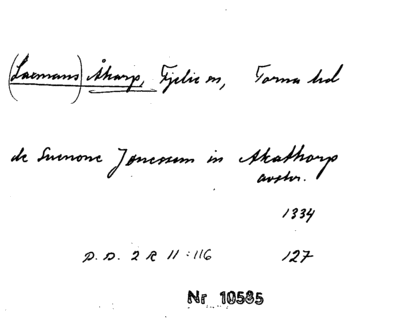 (Laemans) Åkarp, Fjelie sn, Torna hd
de Suenone Jonessum in Akathorp
avskr.
1334
D. D. 2 R 11 : 116 127
Nr 10585